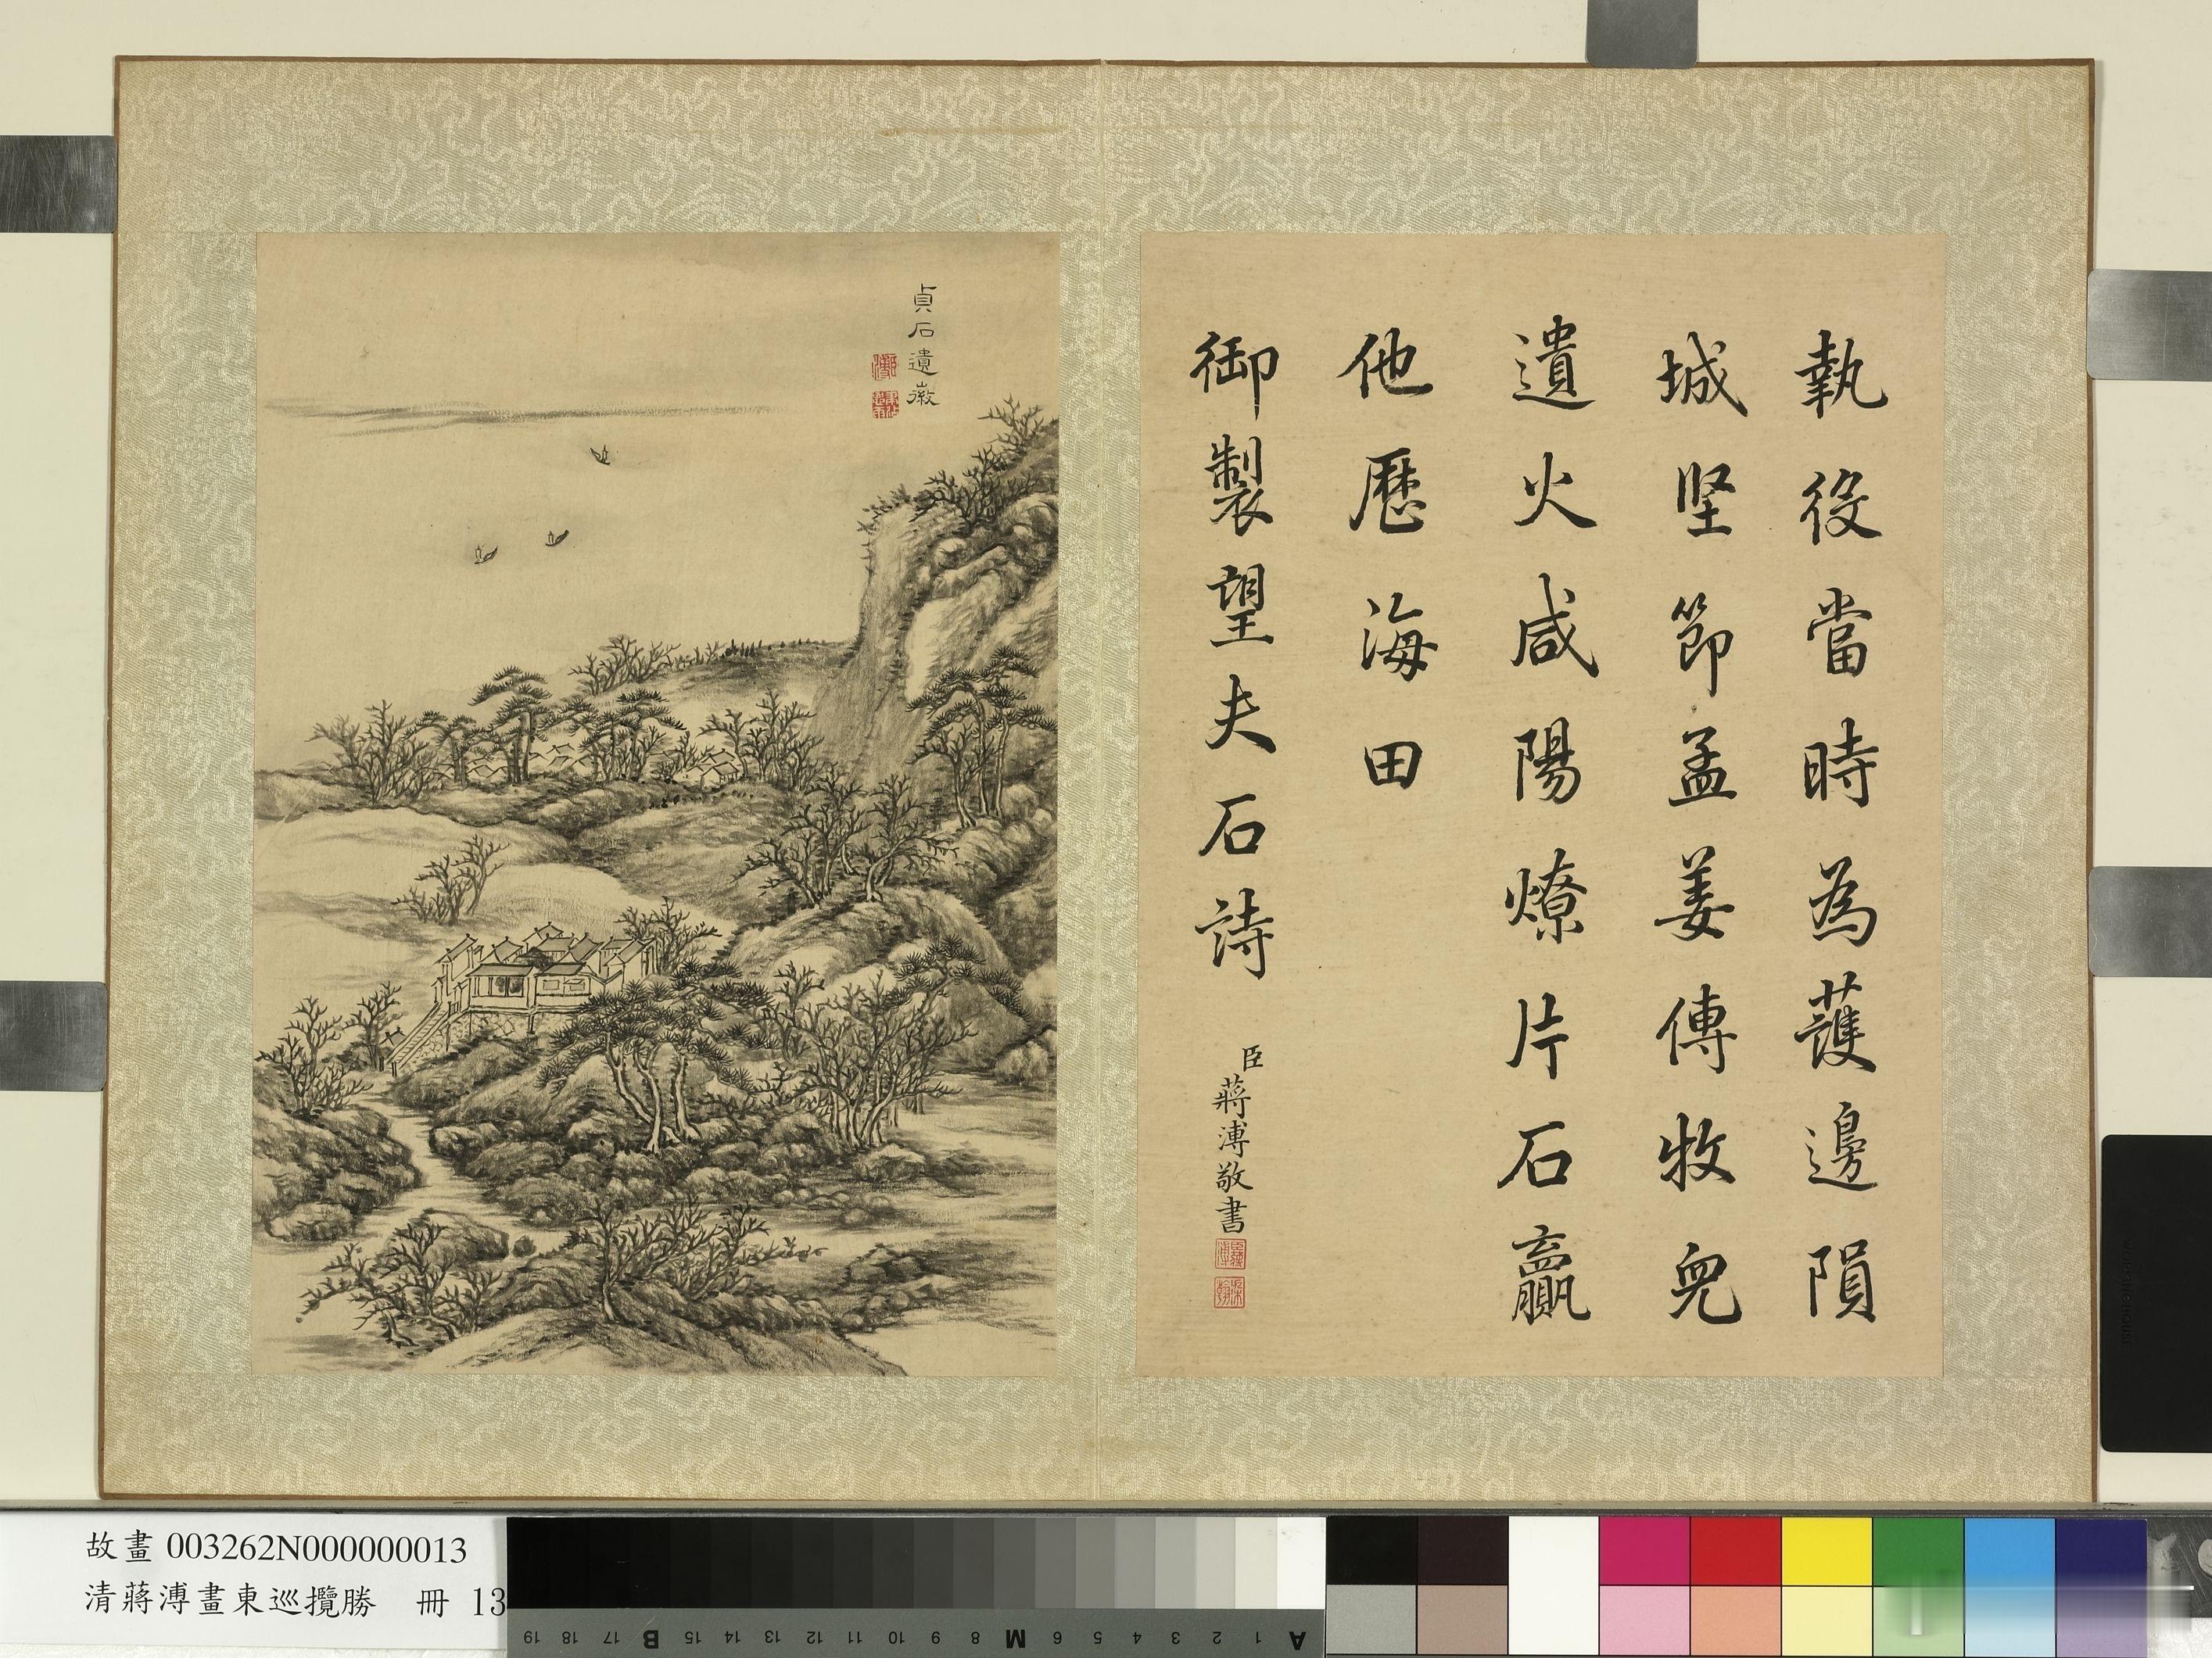 執役當時為護邊隕
城堅節孟姜傳牧兒
遺火咸陽燎片石贏
他歷海田
御製望夫石詩
臣蔣溥敬書
貞石遺徽
故畫 003262N000000013
清蔣溥畫東巡攬勝 冊 13
19 18 17 B 15 14 13 12 11 10 9 8 M 6 5 4 3 2 1 A